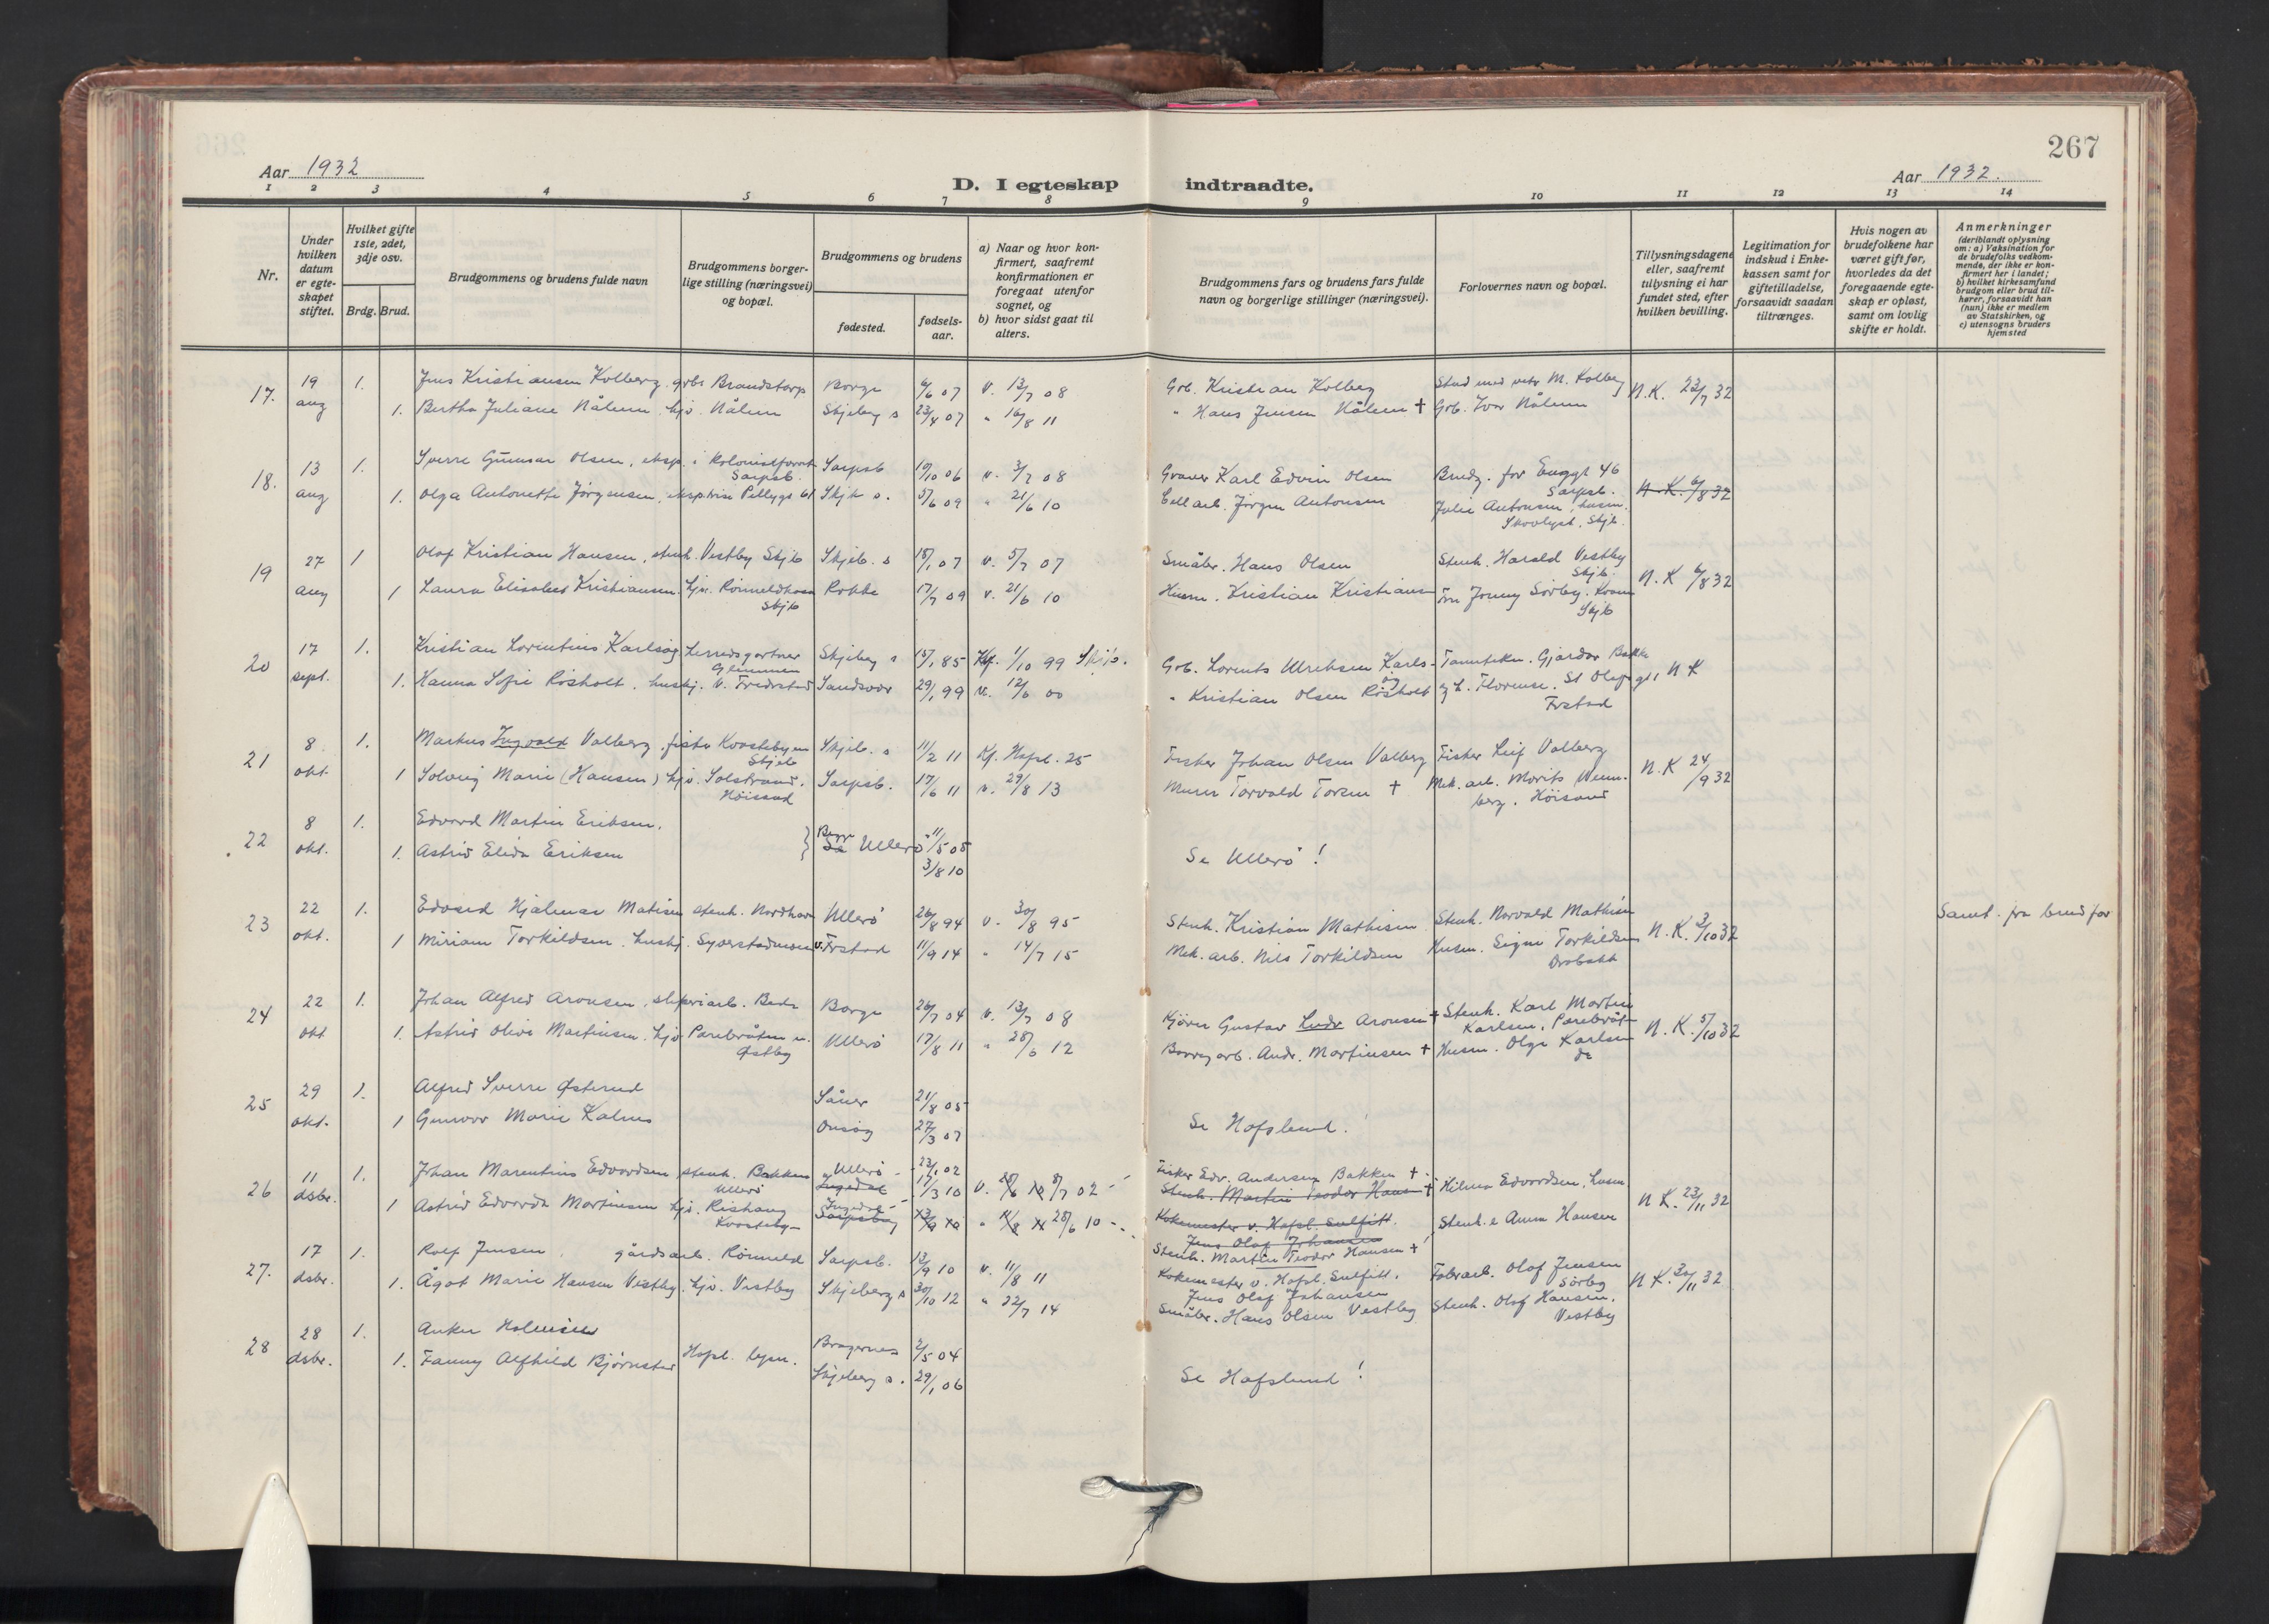 267
Aar 1932
Aar 1932.
D. I egteskap indtraadte.
1 2 3 4 5 6 7 8 9 10 11 12 13 14
Nr.
Under hvilken datum er egteskapet stiftet.
Hvilket gifte 1ste, 2det, 3dje osv.
Brdg. Brud.
Brudgommens og brudens fulde navn
Brudgommens borgerlige stilling (næringsvei) og bopæl.
Brudgommens og brudens
fødested.
fødselsaar.
a) Naar og hvor konfirmert, saafremt konfirmationen er foregaat utenfor sognet, og
b) hvor sidst gaat til alters.
Brudgommens fars og brudens fars fulde navn og borgerlige stillinger (næringsvei).
Forlovernes navn og bopæl.
Tillysningsdagene eller, saafremt tillysning ei har fundet sted, efter hvilken bevilling.
Legitimation for indskud i Enkekassen samt for giftetilladelse, forsaavidt saadan tiltrænges.
Hvis nogen av brudefolkene har været gift før, hvorledes da det foregaaende egteskap er opløst, samt om lovlig skifte er holdt.
Anmerkninger
(deriblandt oplysning om: a) Vaksination for de brudefolks vedkommende, der ikke er konfirmert her i landet; b) hvilket kirkesamfund brudgom eller brud tilhører, forsaavidt han (hun) ikke er medlem av Statskirken, og c) utensogns bruders hjemsted
17. 19 aug 1. Jens Kristiansen Kolberg, grbr Brandstorp Borge 6/6 07 v. 13/7 08 Grb. Kristian Kolberg Stud med vetr M. Kolberg N.K. 23/7 32
1. Bertha Juliane Nålum hjv. Nålum Skjeberg s 23/4 07 " 16/8 11 " Hans Jensen Nålum † Grb. Ivar Nålum
18. 13 aug 1. Sverre Gunnar Olsen, eksp. i kolonialforret Sarpsb. Sarpsb 19/10 06 v. 3/7 08 Graver Karl Edvin Olsen Brudg. far Enggt 46 Sarpsb. N.K. 6/8 32
1. Olga Antonette Jørgensen, eksptrise Pellygt 61 Skjb s. 5/6 09 " 21/6 10 Cell arb. Jørgen Antonsen Julie Antonsen, husm. Skovlyst, Skjb.
19 27 aug 1 Olaf Kristian Hansen, stenh. Vestby Skjb Skjeb. s 18/1 07 v. 5/7 07 Småbr. Hans Olsen Stenh. Harald Vestby Skjb. N.K 6/8 32
1 Laura Elisabet Kristiansen. hjv. Rönneldkasa Skjb Rokke 17/7 09 v. 21/6 10 Husm. Kristian Kristiansen Fru Jenny Sørby. Skjb
20 17 sept. 1. Kristian Lorentius Karlsøg herredsgartner Glemmen Skjeberg s 15/1 85 Kf. 1/10 99 Skjb. Grb. Lorents Ulriksen Karlsøg Tanntekn. Gjardar Bakke N K
1. Hanna Sofie Rösholt. huskj. v. Fredrstad Sandsvær 29/1 99 v. 12/6 00 " Kristian Olsen Rösholt St Olafsgt 1 Frstad
21 8 okt. 1. Markus Ingvald Valberg, fisker Kvastebyen Skjeb Skjeb. s 11/2 11 Kf. Hafsl. 25 Fisker Johan Olsen Valberg Fisker Leif Valberg N.K 24/9 32
1 Solveig Marie (Hansen) hjv. Solstrand. Höisand Sarpsb. 17/6 11 v. 29/8 13 Murer Torvald Torsen † Mek. arb. Morits Wennberg. Höisand
22 8 okt. 1. Edvard Martin Eriksen. } Begge Ullerö 11/5 05 Se Ullerö!
1. Astrid Elida Eriksen 3/8 10
23 22 okt. 1. Edvard Hjalmar Matisen stenh. Nordhavn Ullerö 26/8 94 v. 30/8 95 Stenh. Kristian Mathisen Stenh. Norvald Mathisen N.K. 3/10 32 Samt. fra brud far
1 Miriam Torkildsen. huskj. Syverstadmoen v. Frstad 11/9 14 " 14/7 15 Mek. arb. Nils Torkildsen Husm. Signe Torkildsen Drøbakk
24 22 okt 1. Johan Alfred Aronsen, sliperiarb. Berb Borge 26/7 04 v. 13/7 08 Kjører Gustav Ludv Aronsen † Stenh. Karl Martin Karlsen, Parebråt N.K. 5/10 32
1. Astrid Olive Martinsen. hjv Parebråten u. Østby Ullerö 17/8 11 " 28/6 12 Borregarb. Andr. Martinsen † Husm. Olga Karlsen do
25 29 okt. 1. Alfred Sverre Østerud Såner 21/8 05 Se Hafslund!
1 Gunvor Marie Kalnes Onsøy 27/3 07
26 11 dsbr. 1. Johan Marentius Edvardsen stenh. Bakken Ullerö Ullerö 23/1 02 v. 8/7 02 Fisker Edv. Andersen Bakken † Hilma Edvardsen, husm. N K. 23/11 32
Stenh. Martin Teodor Hansen †
1 Astrid Edvarda Martinsen hjv. Rishaug Kvasteby Ingedal Sarpsborg 17/3 10 " 28/6 10 Kokemester v. Hafsl. Sulfitt. Jens Olaf Johansen Stenh.e Anna Hansen
Stenh. Martin Teodor Hansen †
27. 17 dsbr. 1. Rolf Jensen, gårdsarb. Rönneld Sarpsb. 13/9 10 v. 11/8 11 Kokemester v. Hafsl. Sulfitt. Jens Olaf Johansen Fabrarb. Olaf Jensen Sörby N K. 30/11 32
1. Ågot Marie Hansen Vestby. hjv. Vestby Skjeberg s 30/10 12 " 22/7 14 Småbr. Hans Olsen Vestby Stenh. Olaf Hansen. Vestby
28 28 dsbr. 1. Anker Halvorsen Hafsl. Bragernes 2/5 04 Se Hafslund!
1. Fanny Alfhild Bjørnstad Skjeberg s. 29/1 06